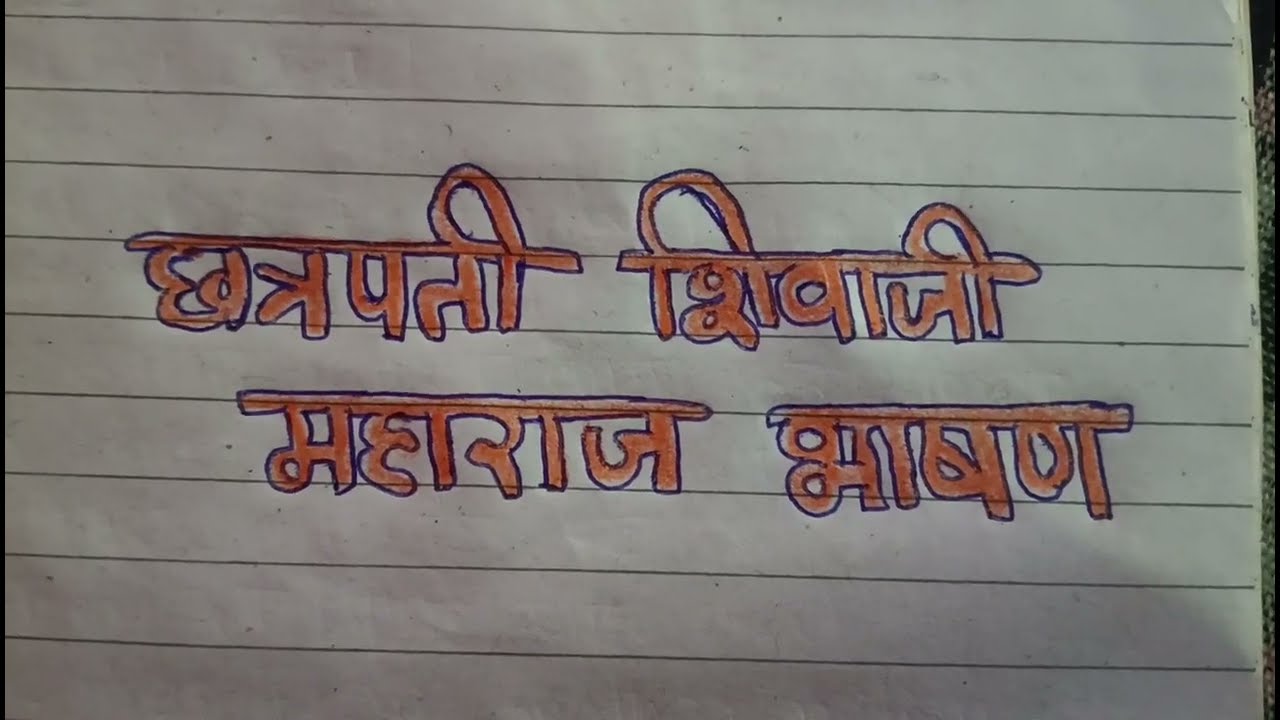 छत्रपती शिवाजी
महाराज भाषण